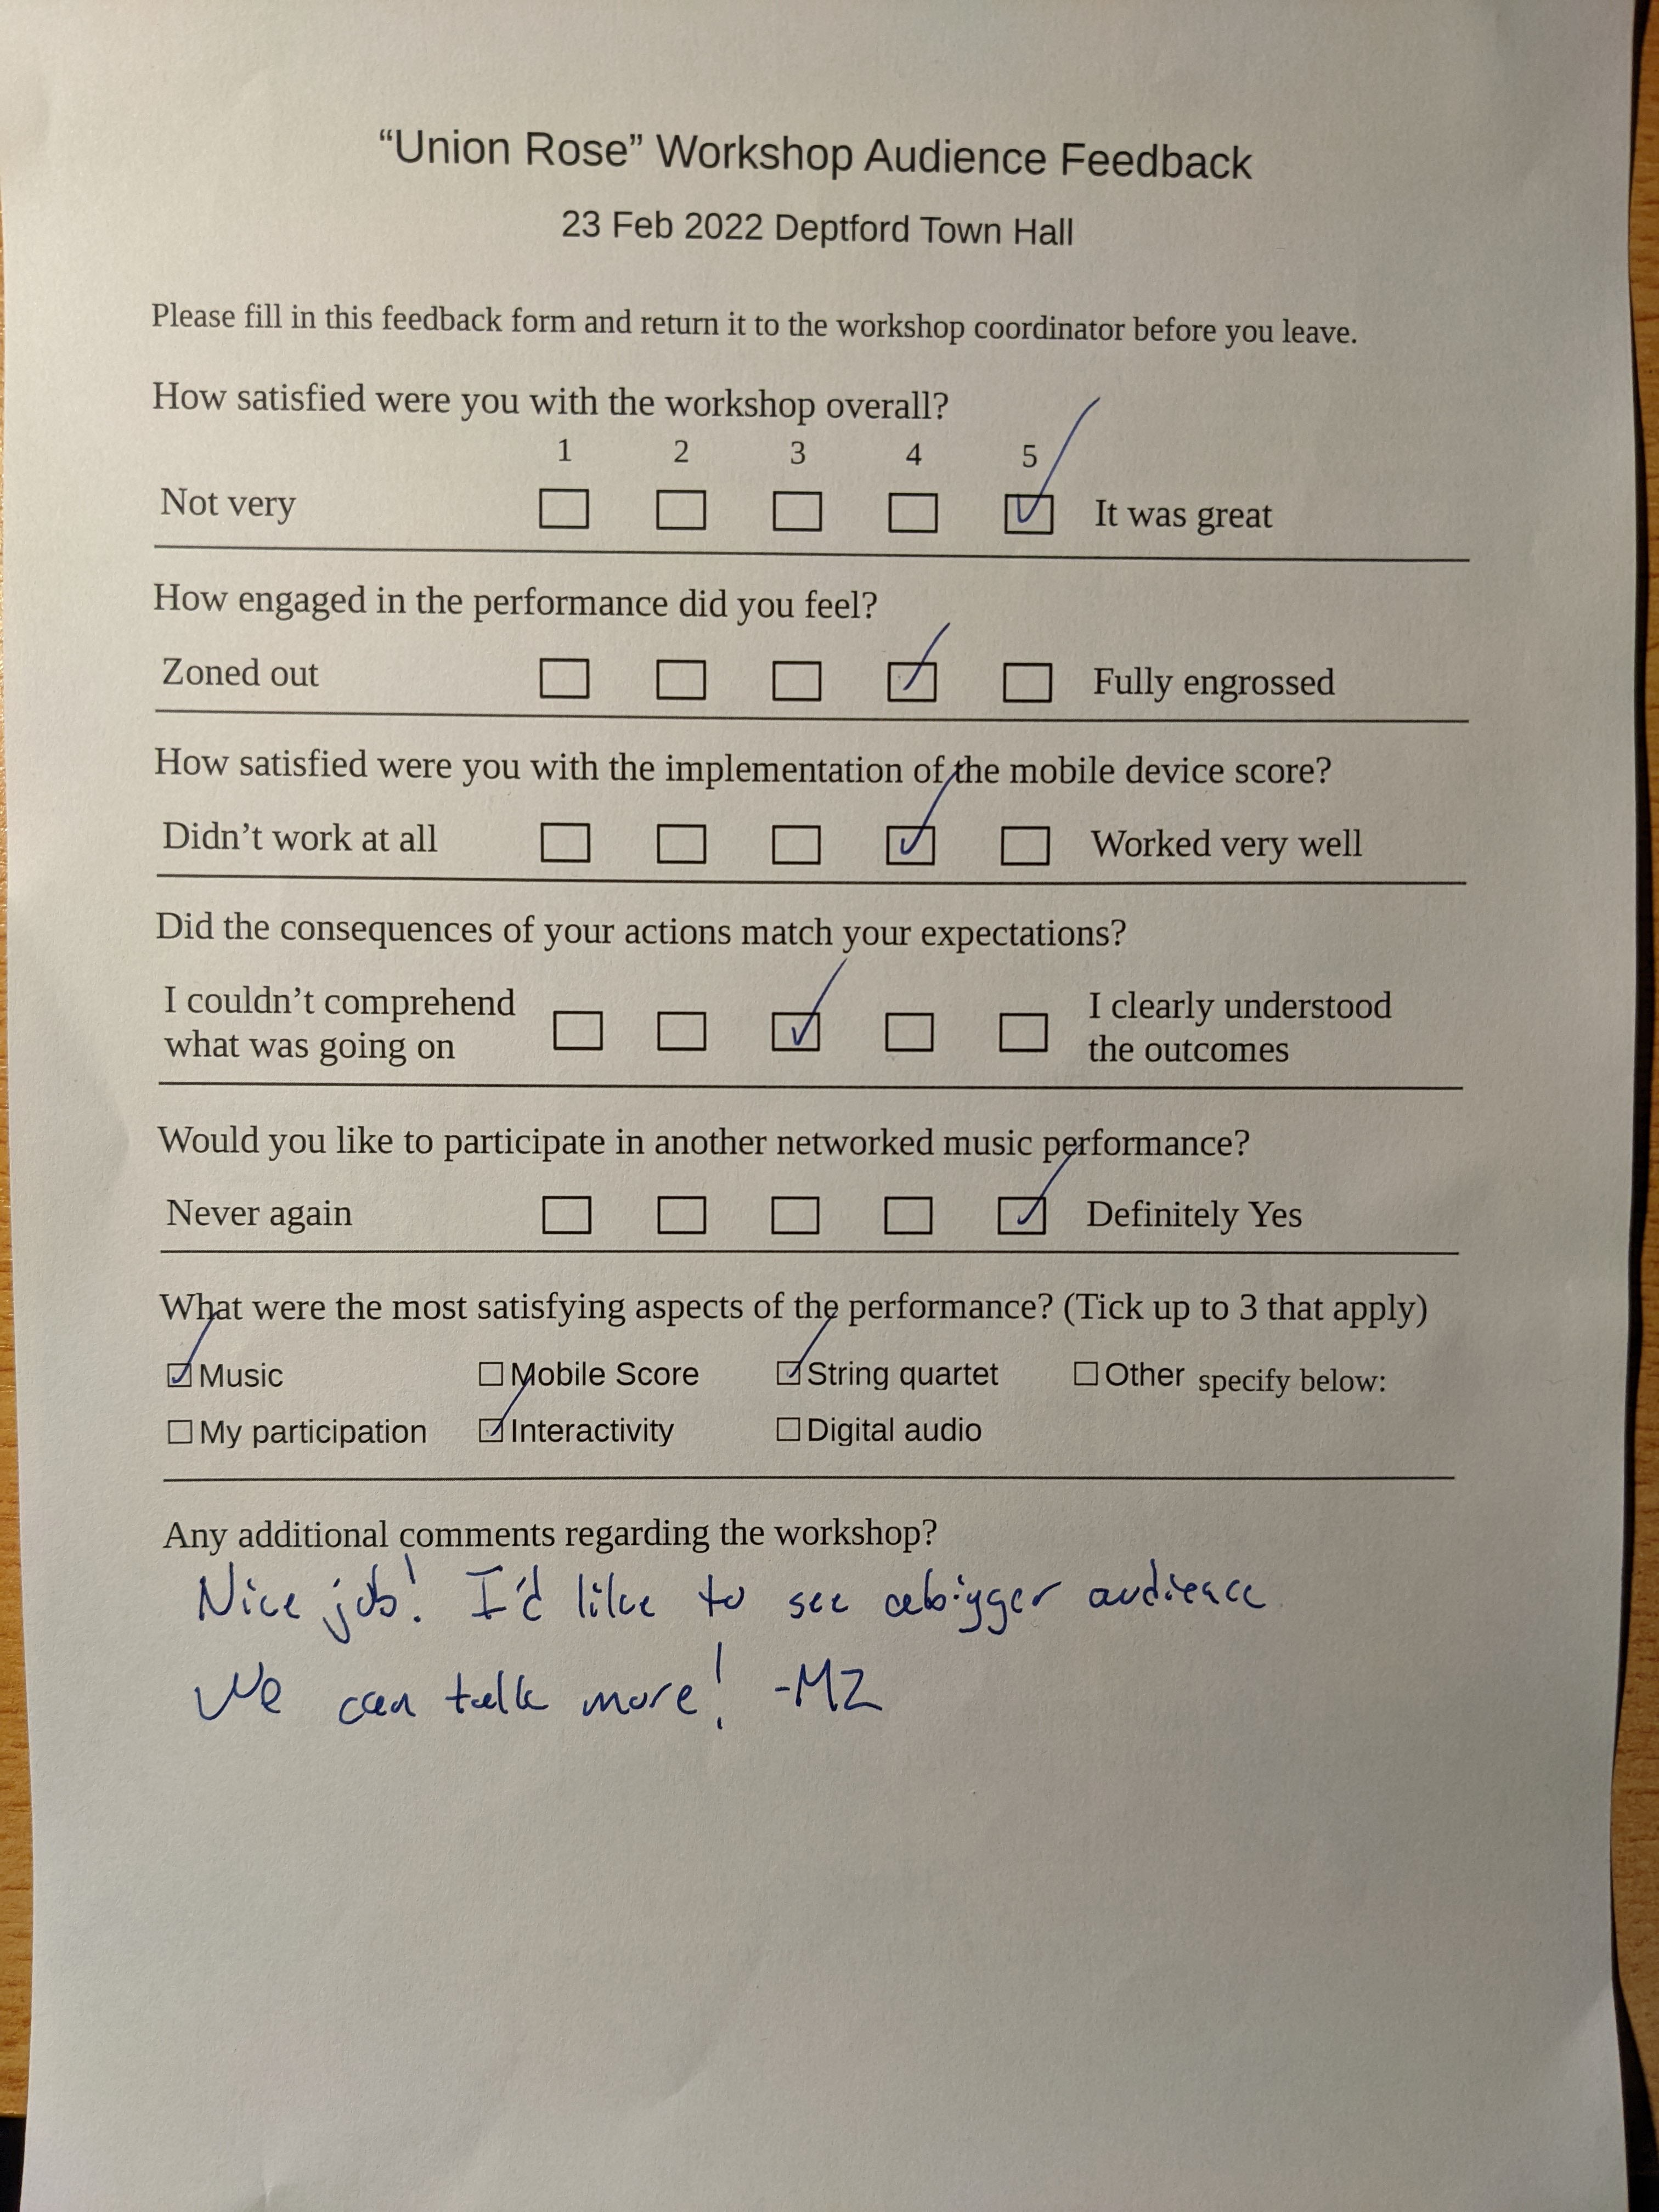 “Union Rose” Workshop Audience Feedback
23 Feb 2022 Deptford Town Hall
Please fill in this feedback form and return it to the workshop coordinator before you leave.
How satisfied were you with the workshop overall?
1 2 3 4 5
Not very It was great
How engaged in the performance did you feel?
Zoned out Fully engrossed
How satisfied were you with the implementation of the mobile device score?
Didn’t work at all Worked very well
Did the consequences of your actions match your expectations?
I couldn’t comprehend I clearly understood
what was going on the outcomes
Would you like to participate in another networked music performance?
Never again Definitely Yes
What were the most satisfying aspects of the performance? (Tick up to 3 that apply)
Music Mobile Score String quartet Other specify below:
My participation Interactivity Digital audio
Any additional comments regarding the workshop?
Nice job! I'd like to see a bigger audience.
We can talk more! -MZ